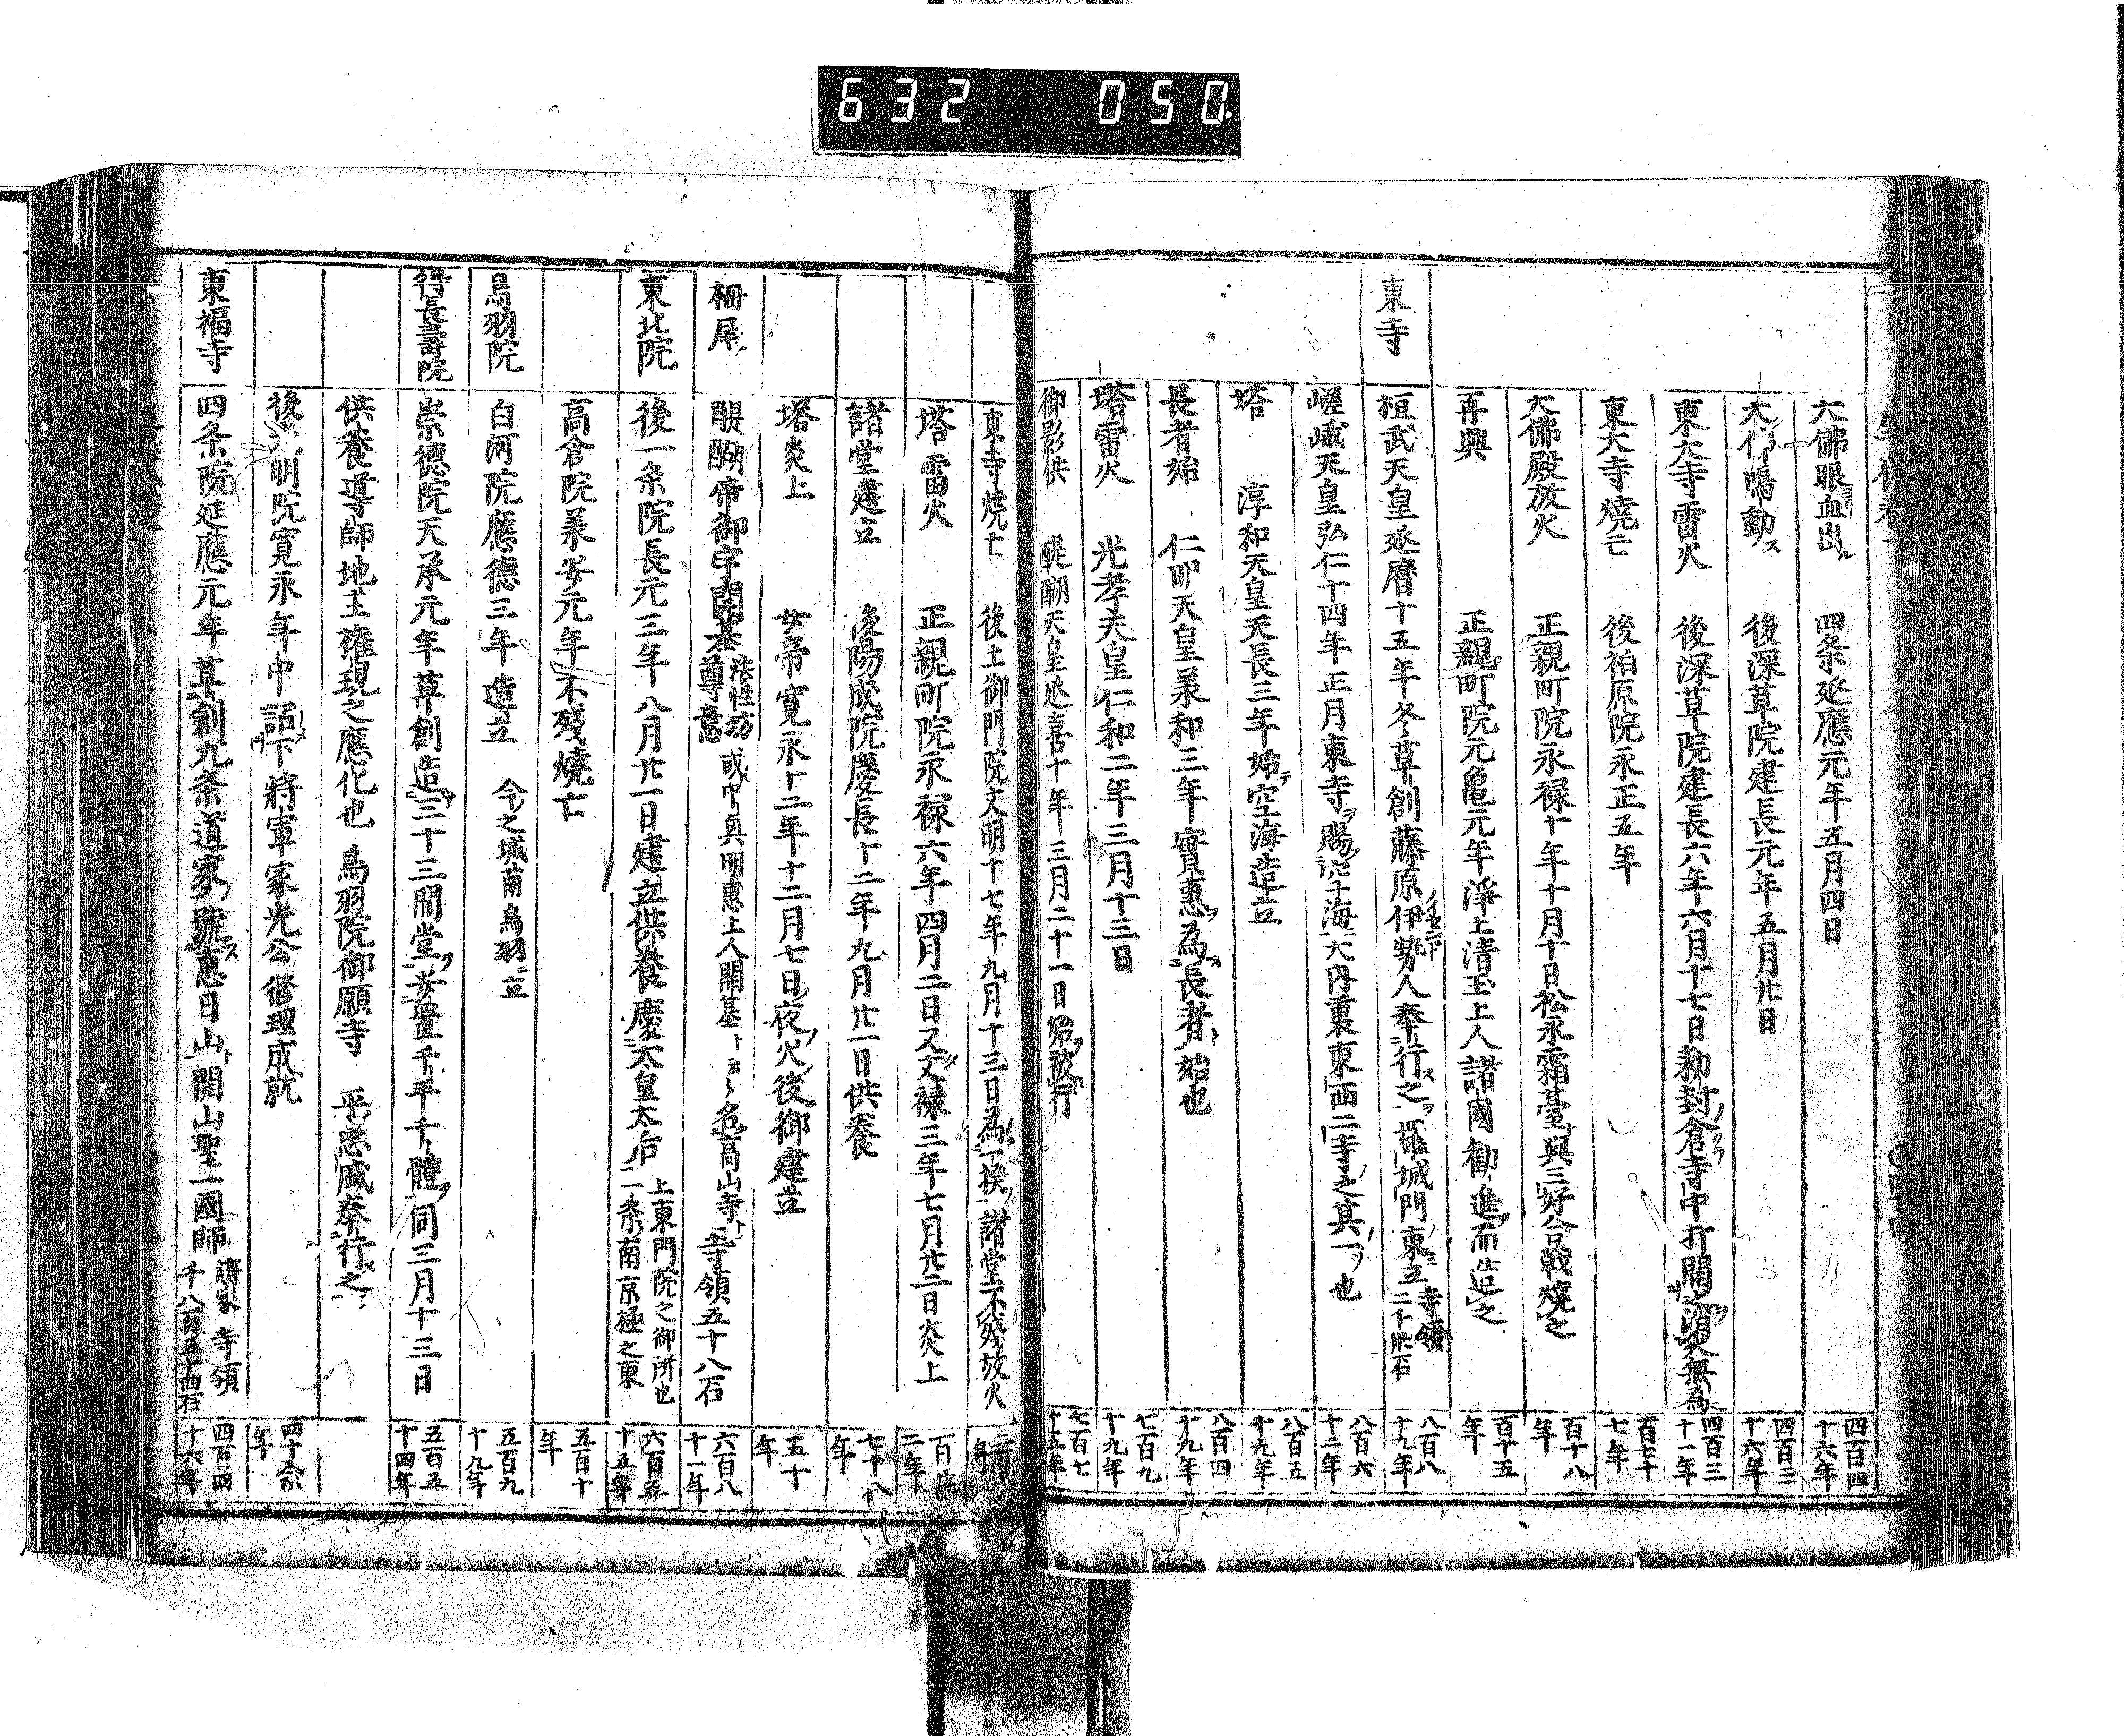 632 050.
大佛眼血出 四条延應元年五月四日 四百四十六年
大佛鳴動ス 後深草院建長元年五月廿日 四百三十六年
東大寺雷火 後深草院建長六年六月十七日勅封倉寺中打開之須臾無為 四百三十一年
東大寺焼亡 後柏原院永正五年 百七十七年
大佛殿放火 正親町院永禄十年十月十日松永霜臺與三好合戦焼之 百十八年
再興 正親町院元亀元年淨土清玉上人諸國勧進而造之 百十五年
東寺 桓武天皇延暦十五年冬草創藤原伊勢人奉行之羅城門東立 寺領二千卅石 八百八十九年
嵯峨天皇弘仁十四年正月東寺賜空海大内裏東西二寺之其一也 八百六十二年
塔 淳和天皇天長三年始空海造立 八百五十九年
長者始 仁明天皇承和三年實惠為長者始也 八百四十九年
塔雷火 光孝天皇仁和二年三月十三日 七百九十九年
御影供 醍醐天皇延喜十年三月二十一日始被行 七百七十五年
東寺焼亡 後土御門院文明十七年九月十三日為一揆諸堂不残放火 二百年
塔雷火 正親町院永禄六年四月二日又文禄三年七月廿二日炎上 百廿二年
諸堂建立 後陽成院慶長十二年九月廿一日供養 七十八年
塔炎上 女帝寛永十二年十二月七日夜火後御建立 五十年
栂尾 醍醐帝御宇開基法性坊尊意 或中興明惠上人開基云々名高山寺寺領五十八石 六百八十一年
東北院 後一条院長元三年八月廿一日建立供養慶太皇太后 上東門院之御所也一条南京極之東 六百五十五年
高倉院承安元年不残燒亡 五百十年
鳥羽院 白河院應德三年造立 今之城南鳥羽立 五百九十九年
得長壽院 崇德院天承元年草創造三十三間堂安置千千體同三月十三日 五百五十四年
供養導師地主權現之應化也 鳥羽院御願寺 平忠盛奉行之
明院寛永年中詔下將軍家光公修理成就 四十余年
東福寺 四条院延應元年草創九条道家號惠日山開山聖一國師 濟家 寺領千八百五十四石 四百四十六年